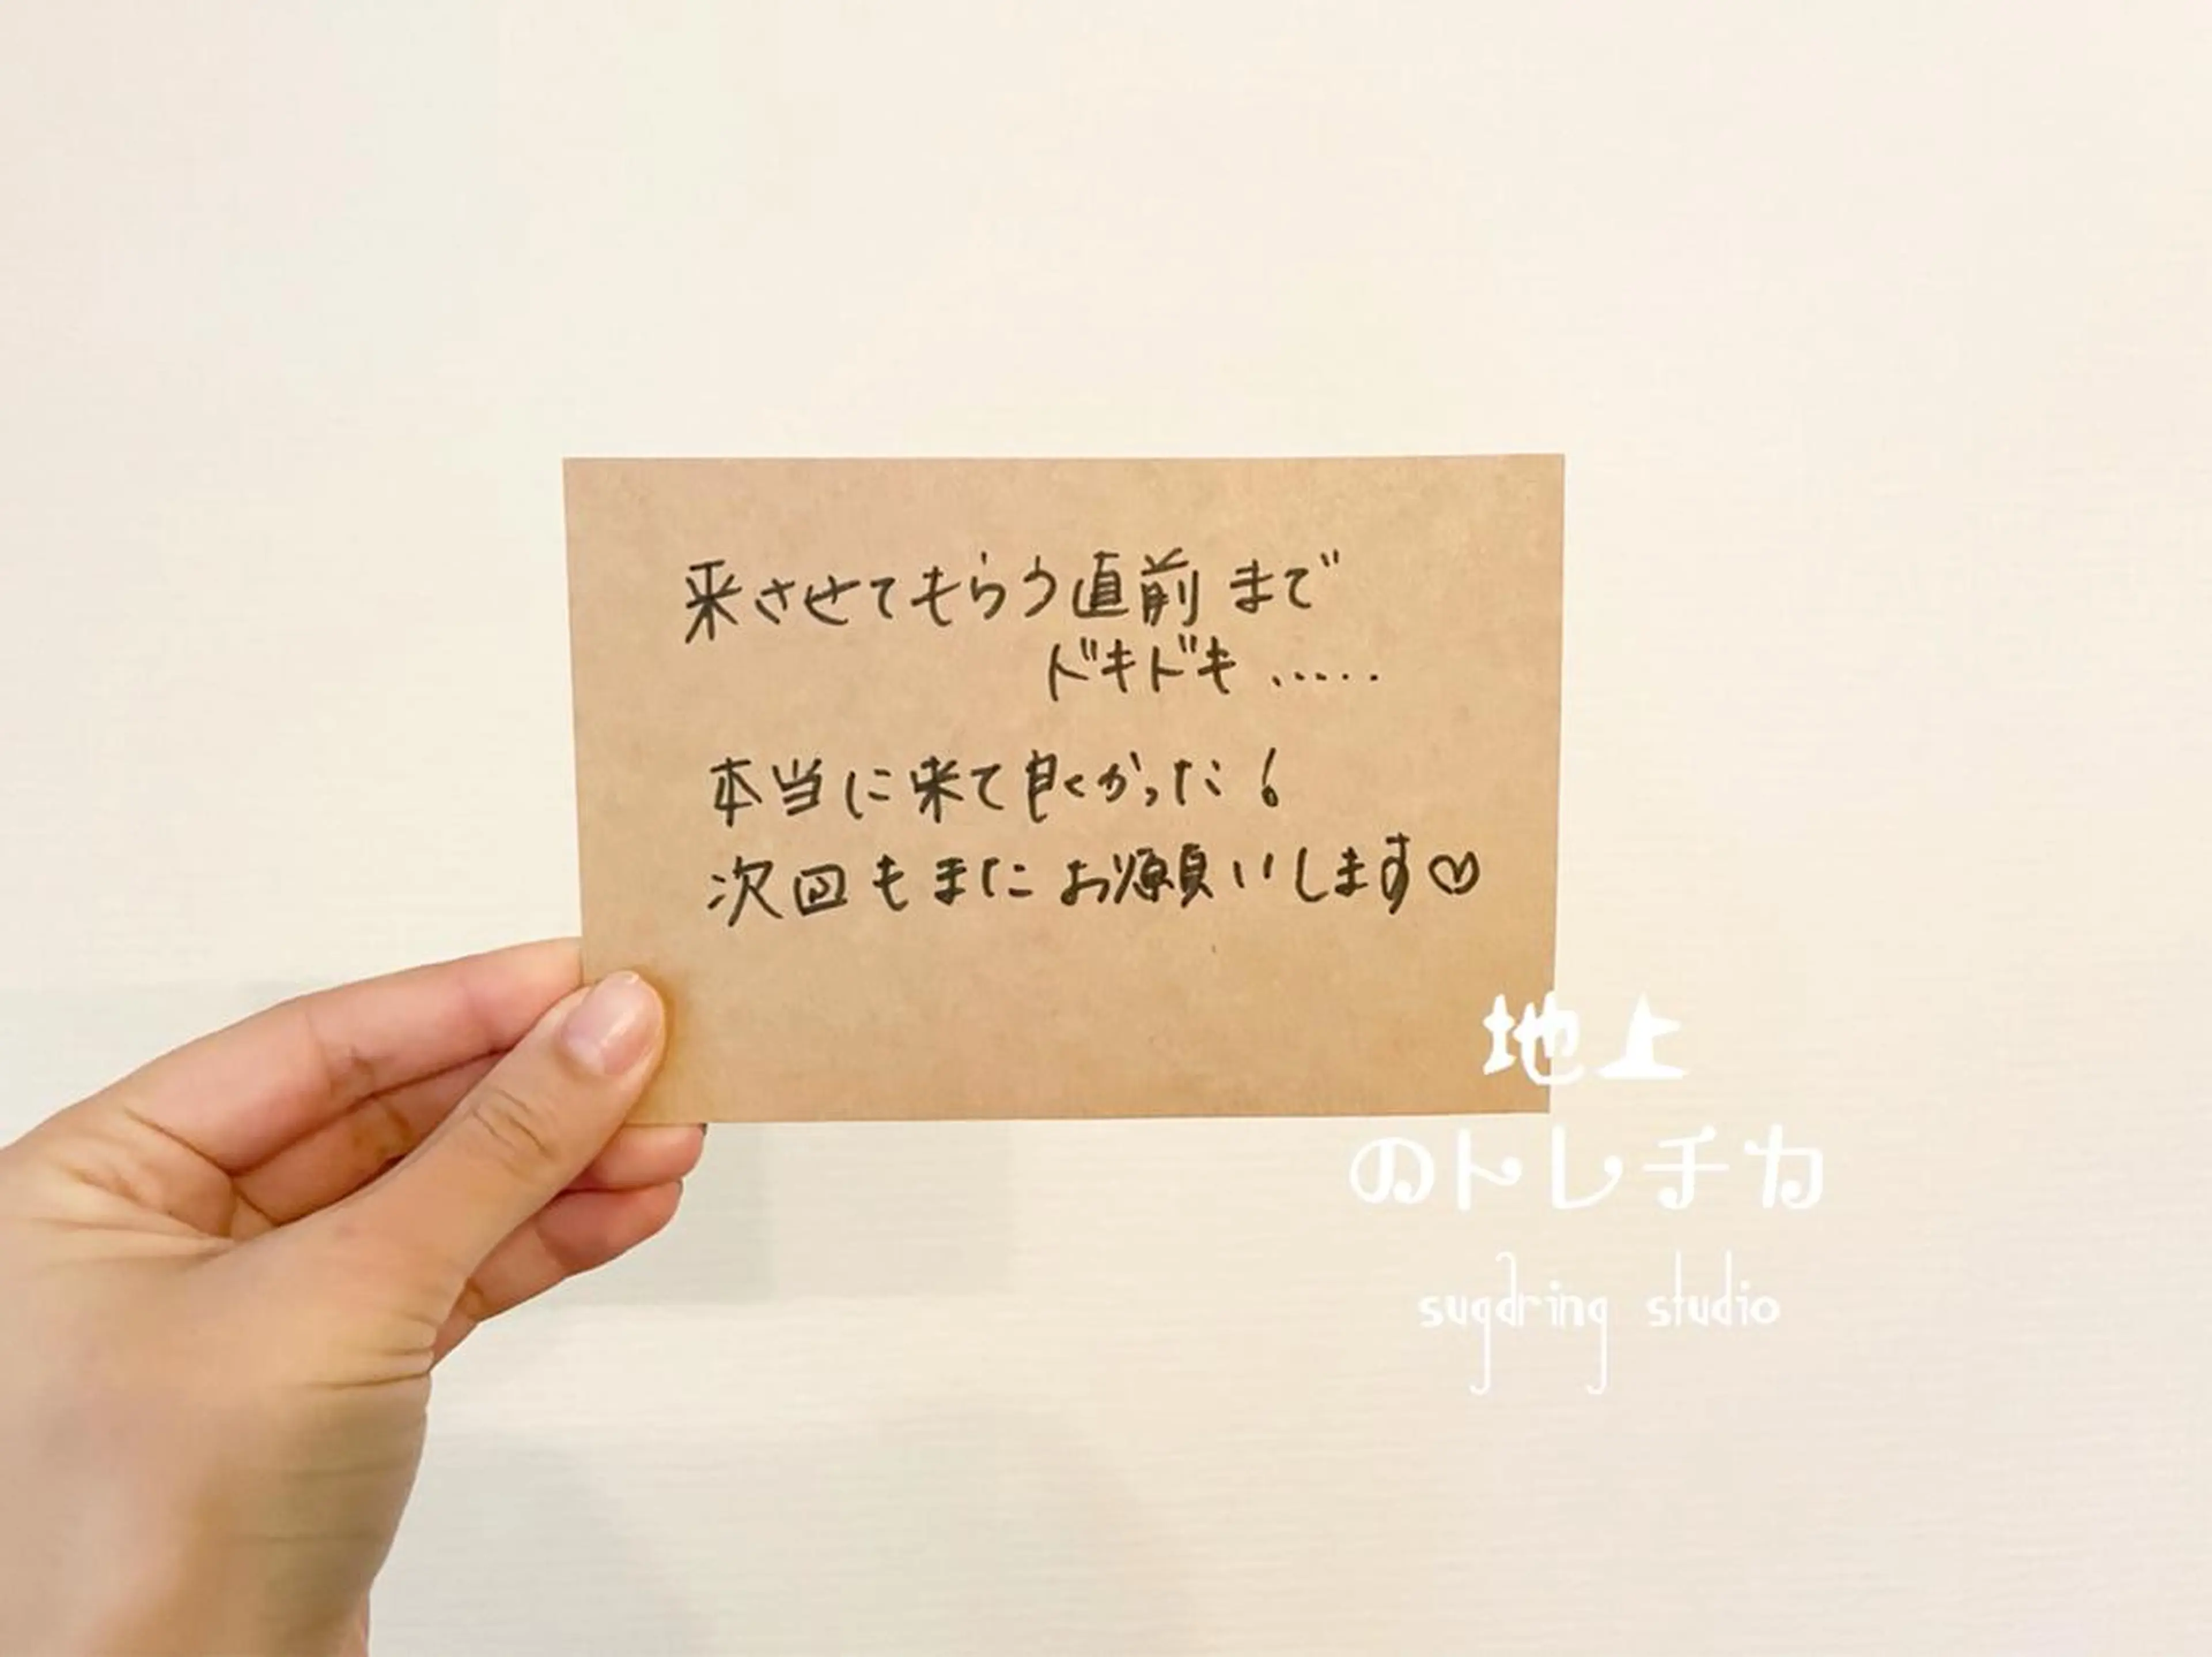 来させてもらう直前まで
ドキドキ .....
本当に来て良かった!
次回もまたお願いします♡
地上
のトレチカ
sugaring studio